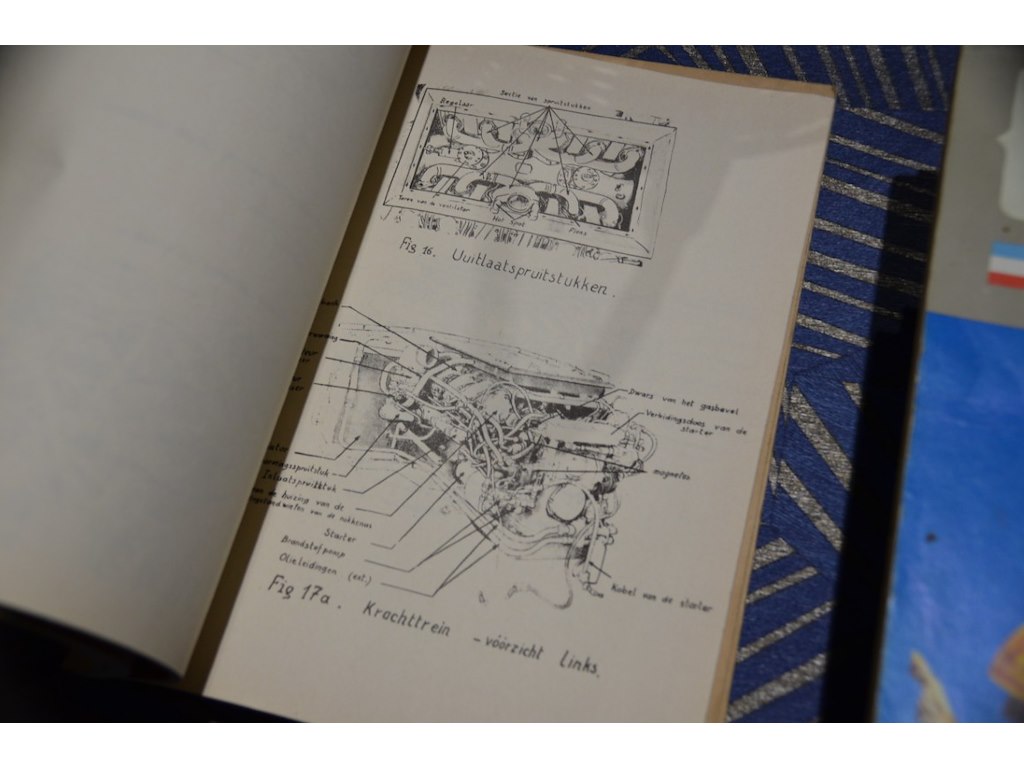 Sectie van spruitstukken
Regelaar
Toren van de ventilator
Hot Spot
Flens
Fig 16. Uuitlaatspruitstukken.
Dwars van het gashevel
Verbidingsdoos van de
starter
magnetos
Inlaatspruitstuk
de huizing van de
van de nokkenas
Starter
Brandstofpomp
Olieleidingen (ext.)
Kabel van de starter
Fig 17a. Krachttrein - vóórzicht links.